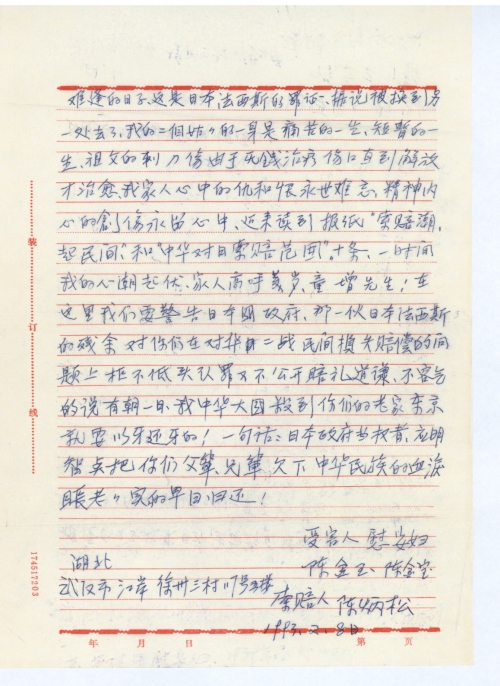 难逢的日子，这是日本法西斯的罪证。据说被换到另
一处去了，我的二个姑〃的一身是痛苦的一生，短暂的一
生，祖父的刺刀伤由于无钱治疗伤口直到解放
才治愈，我家人心中的仇和恨永世难忘，精神内
心的創伤永留心中，近来读到报纸“索赔潮，
起民间”和“中华对日索赔范围”十条，一时间
我的心潮起伏，家人高呼万岁，童增先生！在
这里我们要警告日本国政府，那一伙日本法西斯
的残余对你们在对华二战民间损失赔偿的问
题上拒不低头认罪又不公开赔礼道谦，不客气
的说有朝一日，我中华大国殺到你们的老家东京
就要以牙还牙的！一句话：日本政府当权者，应明
智点把你们父辈、兄辈欠下中华民族的血海
賬老〃实的早日归还！
受害人 慰安妇
陈金玉 陈金宝
湖北
武汉市江岸徐州三村11号3楼
索赔人 陈炳松
1993.2.8日
装
订
线
174517203
年 月 日 第 页